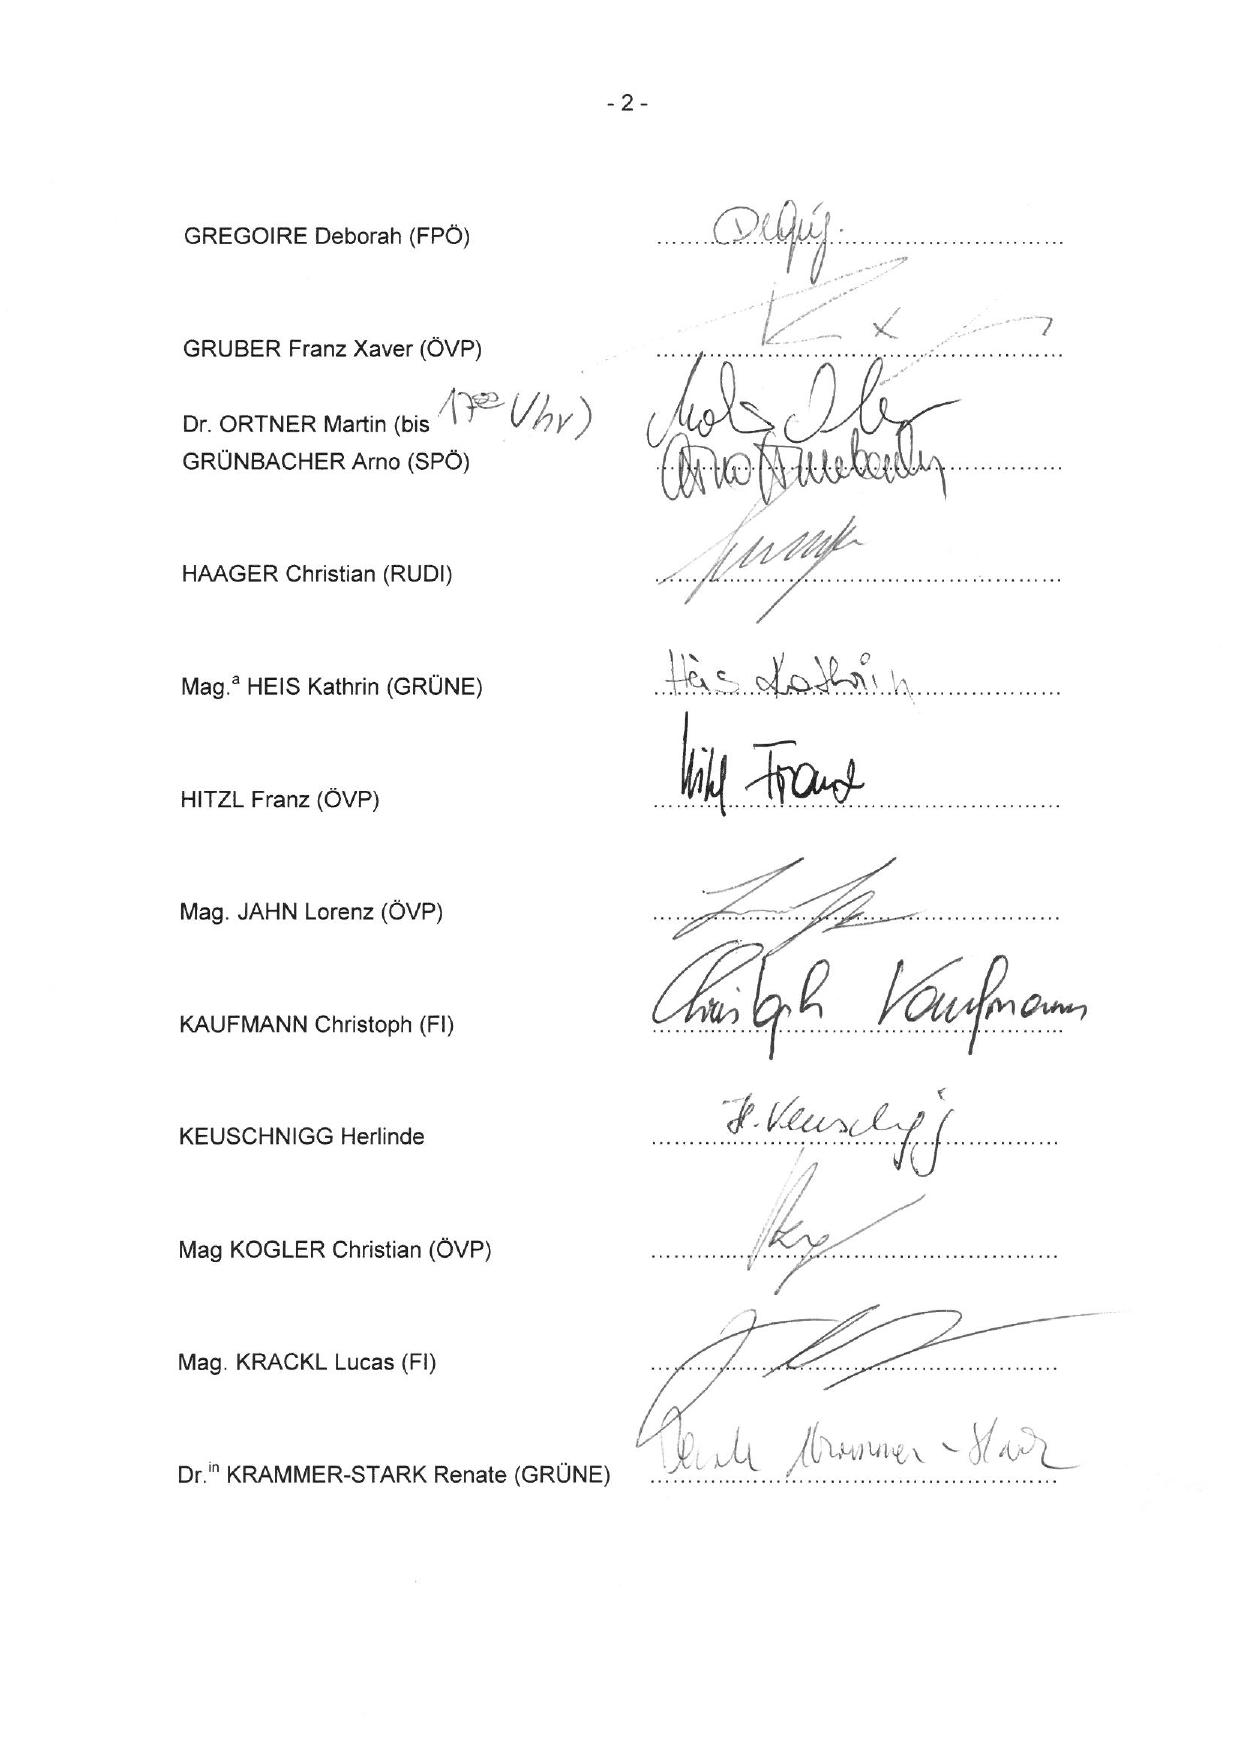 - 2 -
GREGOIRE Deborah (FPÖ)
GRUBER Franz Xaver (ÖVP)
Dr. ORTNER Martin (bis 17⁰⁰ Uhr)
GRÜNBACHER Arno (SPÖ) Arno Grünebacher
HAAGER Christian (RUDI)
Mag.ª HEIS Kathrin (GRÜNE) Heis Kathrin
HITZL Franz (ÖVP) Hitzl Franz
Mag. JAHN Lorenz (ÖVP)
KAUFMANN Christoph (FI) Christoph Kaufmann
KEUSCHNIGG Herlinde H. Keuschnigg
Mag KOGLER Christian (ÖVP)
Mag. KRACKL Lucas (FI)
Dr.ⁱⁿ KRAMMER-STARK Renate (GRÜNE) Renate Krammer-Stark